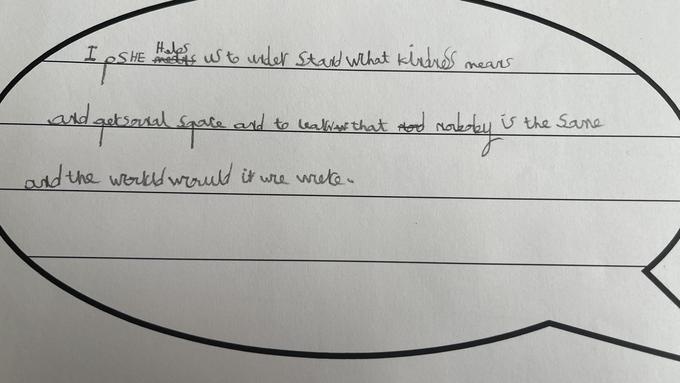 I pSHE Helps us to under stand what kindness means
and personal space and to that nobody is the same
and the world would if we were.